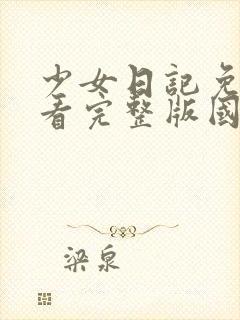 少女日記免
看完整版國
梁泉